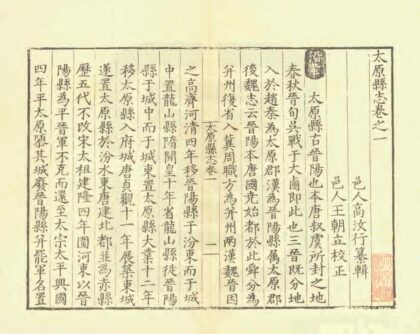 太原縣志卷之一
邑人高汝行纂輯
邑人王朝立校正
沿革
太原縣古晉陽也本唐叔虞所封之地
春秋晉荀吳戰于大鹵即此也三晉既分地
入於趙秦為太原郡漢為晉陽縣属太原郡
後魏志云晉陽本唐國堯始都於此舜分為
并州復省入冀周職方為并州兩漢魏晉因
太原縣志卷一 一
之高齊河清四年移晉陽縣于汾東而于城
中置龍山縣隋開皇十年省龍山縣徙晉陽
縣于城中而于城東置太原縣大業十二年
移太原縣入府城唐貞觀十一年展築東城
遂置太原縣於汾水東唐建北都並為赤縣
歷五代不改宋太祖建隆四年圍河東以晉
陽縣為平晉軍不克而還至太宗太平興國
四年平太原隳其城廢晉陽縣并罷軍名置